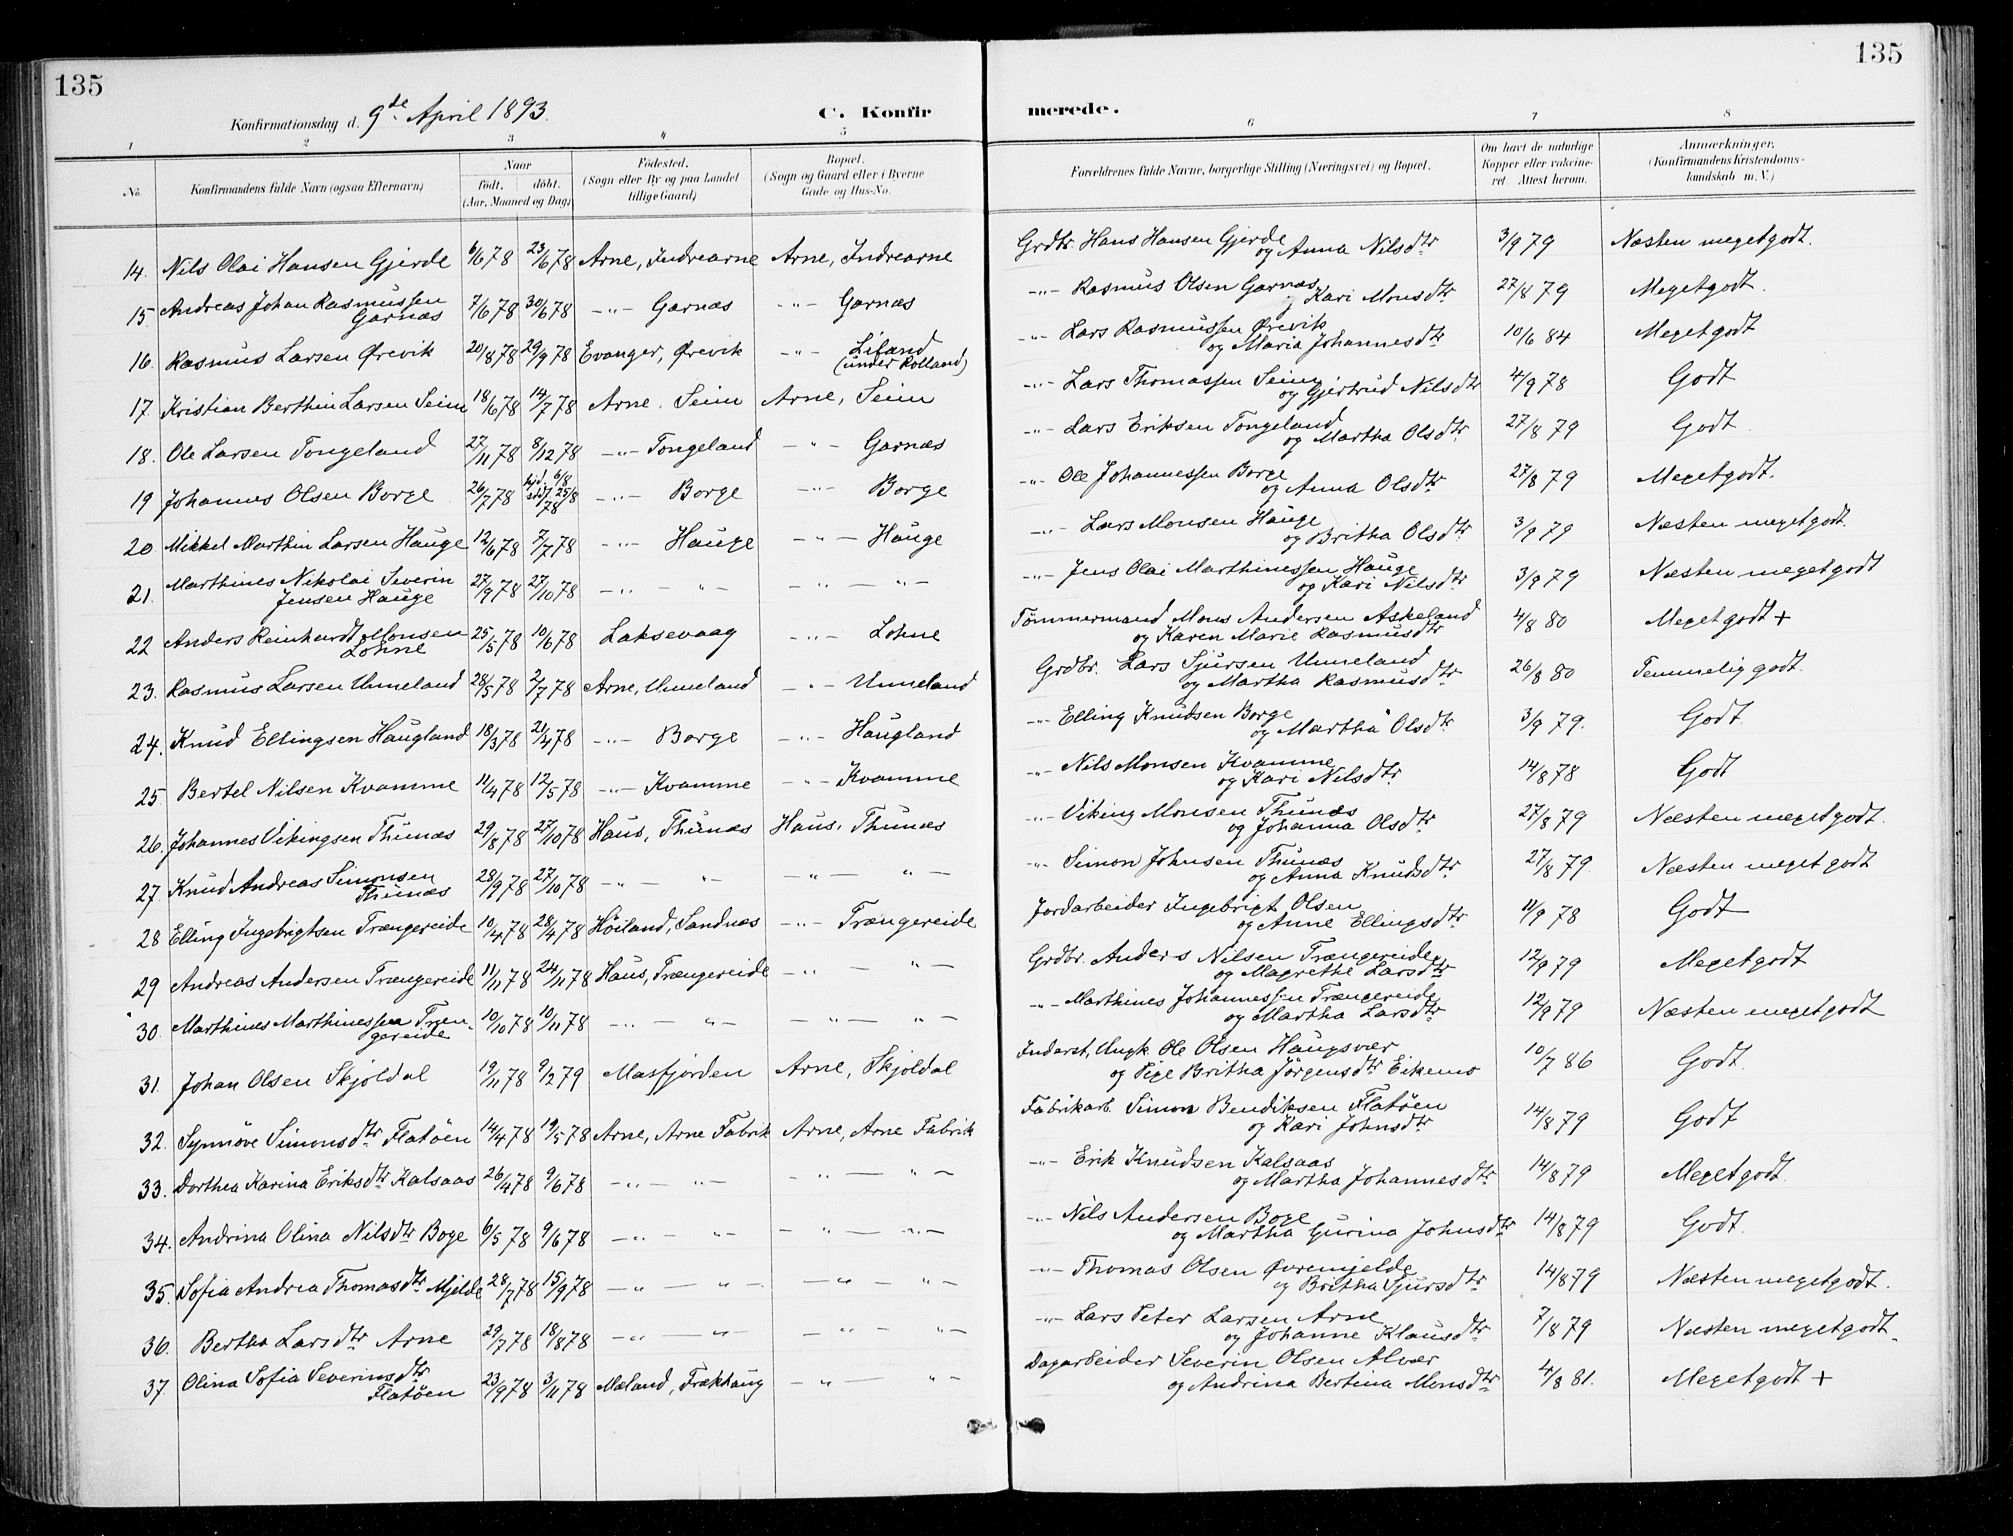 135
135
Konfirmationsdag d. 9de April 1893.
C. Konfir
merede.
1 2 3 4 5 6 7 8
No.
Konfirmandens fulde Navn (ogsaa Efternavn)
Naar
födt. döbt.
(Aar, Maaned og Dag)
Födested.
(Sogn eller By og paa Landet
tillige Gaard)
Bopæl.
(Sogn og Gaard eller i Byerne
Gade og Hus-No.
Forældrenes fulde Navne, borgerlige Stilling (Næringsvei) og Bopæl.
Om havt de naturlige
Kopper eller vakcine-
ret. Attest herom.
Anmærkninger.
(Konfirmandens Kristendoms-
kundskab m. V.)
14. Nils Olai Hansen Gjerde 6/6 78 23/6 78 Arne, Indrearne Arne, Indrearne Grdbr. Hans Hansen Gjerde 3/9 79 Næsten megetgodt.
og Anna Nilsdtr
15. Andreas Johan Rasmussen 7/6 78 30/6 78 -"- Garnæs -"- Garnæs -"- Rasmus Olsen Garnæs 27/8 79 Megetgodt.
Garnæs og Kari Monsdtr
16. Rasmus Larsen Ørevik 20/8 78 29/9 78 Evanger, Ørevik -"- Liland -"- Lars Rasmussen Ørevik 10/6 84 Megetgodt
(under Rolland) og Maria Johannesdtr
17. Kristian Berthin Larsen Seim 18/6 78 14/7 78 Arne, Seim Arne, Seim -"- Lars Thomassen Seim 4/9 78 Godt
og Gjertrud Nilsdtr
18. Ole Larsen Tongeland 27/11 78 8/12 78 -"- Tongeland -"- Garnæs -"- Lars Eriksen Tongeland 27/8 79 Godt
og Martha Olsdtr
19 Johannes Olsen Borge 26/7 78 hjd. 6/8 stdf. 25/8 78 -"- Borge -"- Borge -"- Ole Johannessen Borge 27/8 79 Megetgodt.
og Anna Olsdtr
20 Mikkel Marthin Larsen Hauge 12/6 78 7/7 78 -"- Hauge -"- Hauge -"- Lars Monsen Hauge 3/9 79 Næsten megetgodt.
og Britha Olsdtr
21. Marthines Nikolai Severin 27/9 78 27/10 78 -"- -"- -"- -"- -"- Jens Olai Marthinessen Hauge 3/9 79 Næsten megetgodt
Jensen Hauge og Kari Nilsdtr
22 Anders Reinhardt Monsen 25/5 78 10/6 78 Laksevaag -"- Lohne Tömmermand Mons Andersen Askeland 4/8 80 Megetgodt +
Lohne og Karen Marie Rasmusdtr
23. Rasmus Larsen Unneland 28/5 78 2/7 78 Arne, Unneland -"- Unneland Grdbr. Lars Sjursen Unneland 26/8 80 Temmelig godt.
og Martha Rasmusdtr
24. Knud Ellingsen Haugland 18/3 78 21/4 78 -"- Borge -"- Haugland -"- Elling Knudsen Borge 3/9 79. Godt.
og Martha Olsdtr
25 Bertel Nilsen Kvamme 11/4 78 12/5 78 -"- Kvamme -"- Kvamme -"- Nils Monsen Kvamme 14/8 78 Godt
og Kari Nilsdtr
26. Johannes Vikingsen Thunæs 29/8 78 27/10 78 Haus, Thunæs Haus, Thunæs -"- Viking Monsen Thunæs 27/8 79 Næsten megetgodt.
og Johanna Olsdtr
27 Knud Andreas Simonsen 28/9 78 27/10 78 -"- -"- -"- -"- -"- Simon Johnsen Thunæs 27/8 79. Næsten meget godt
Thunæs og Anna Knudsdtr
28 Elling Ingebrigtsen Trængereide 10/4 78 28/4 78 Höiland, Sandnæs -"- Trængereide Jordarbeider Ingebrigt Olsen 11/9 78 Godt
og Anne Ellingsdtr
29 Andreas Andersen Trængereide 11/11 78 24/11 78 Haus, Trængereide -"- -"- Grdbr. Anders Nilsen Trængereide 12/9 79 Megetgodt
og Magrethe Larsdtr
30. Marthines Marthinessen Træn- 10/10 78 10/11 78 -"- -"- -"- -"- -"- Marthines Johannessen Trængereide 12/9 79 Næsten megetgodt
gereide og Martha Larsdtr
31. Johan Olsen Skjoldal 19/11 78 9/2 79 Masfjorden Arne, Skjoldal Inderst, Ungk Ole Olsen Haugsvær 10/7 86 Godt.
og Pige Britha Jörgensdtr Eikemo
32. Synnöve Simonsdtr Flatöen 14/4 78 19/5 78 Arne, Arne Fabrik Arne, Arne Fabrik Fabrikarb. Simon Bendiksen Flatöen 14/8 79 Godt
og Kari Johnsdtr
33. Dorthea Karina Eriksdtr Kalsaas 26/4 78 9/6 78 -"- -"- -"- -"- -"- Erik Knudsen Kalsaas 14/8 79 Megetgodt.
og Martha Johannesdtr
34. Andrina Olina Nilsdtr Boge 6/5 78 9/6 78 -"- -"- -"- -"- -"- Nils Andersen Boge 14/8 79 Godt.
og Martha Gurina Johnsdtr
35. Sofia Andrea Thomasdtr Mjelde 28/7 78 15/9 78 -"- -"- -"- -"- -"- Thomas Olsen Øvremjelde 14/8 79 Næsten megetgodt.
og Britha Sjursdtr
36. Bertha Larsdtr Arne 29/7 78 18/8 78 -"- -"- -"- -"- -"- Lars Peter Larsen Arne 7/8 79 Næsten megetgodt.
og Johanne Klausdtr
37. Olina Sofia Severinsdtr 23/9 78 3/11 78 Mæland, Frækhaug -"- -"- Dagarbeider Severin Olsen Alvær 4/8 81. Megetgodt +
Flatöen og Andrina Bertina Monsdtr